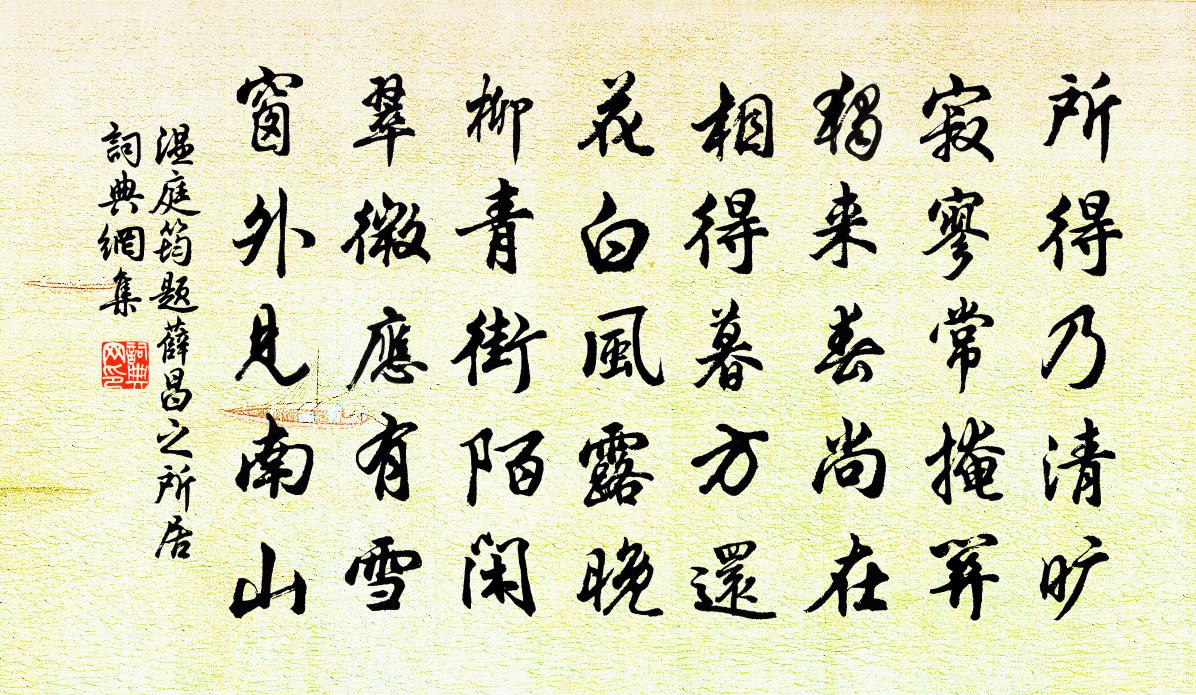 所得乃清旷
寂寥常掩關
獨来春尚在
相得暮方還
花白風露晚
柳青街陌閑
翠微應有雪
窗外見南山
温庭筠题薛昌之所居
詞典網集
詞典
网印